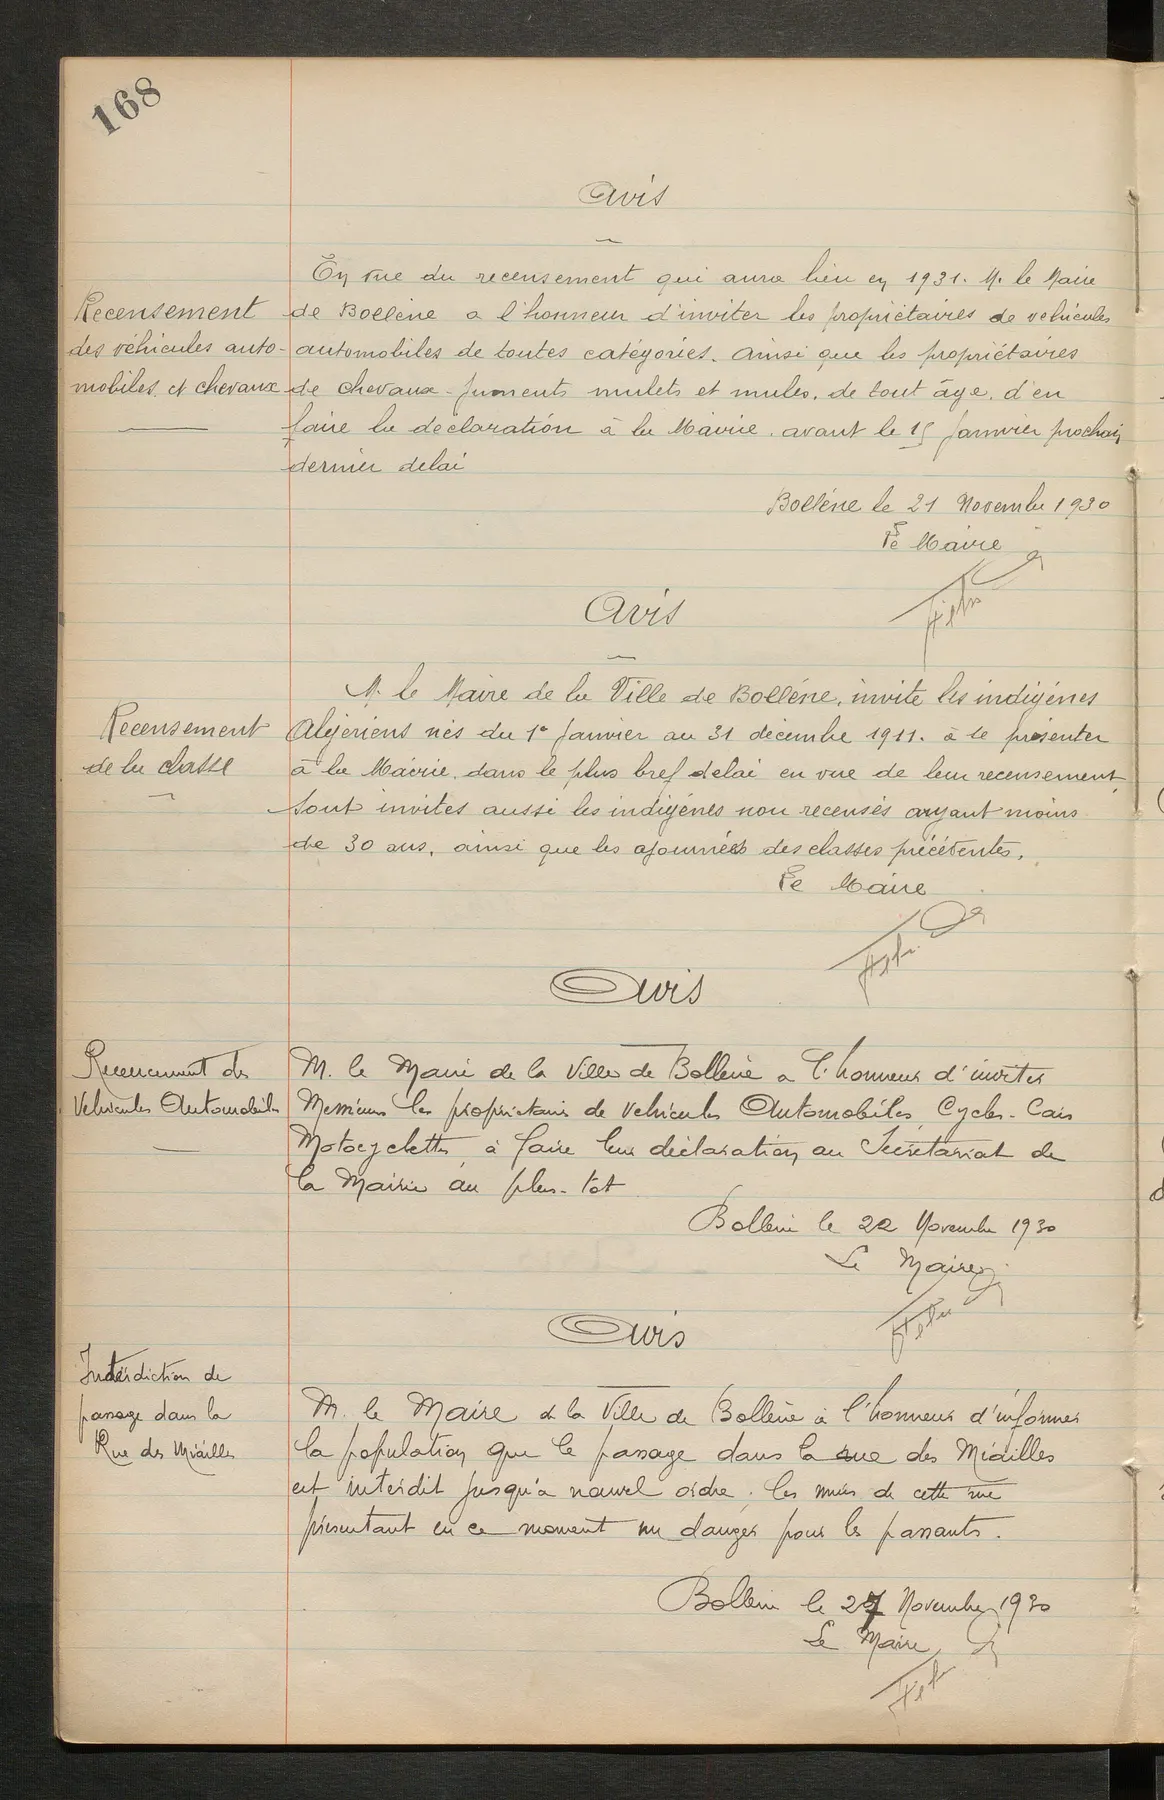 168
Avis
Recensement
des véhicules auto-
mobiles et chevaux
En vue du recensement qui aura lieu en 1931. M. le Maire
de Bollène a l'honneur d'inviter les propriétaires de vehicules
automobiles de toutes catégories. ainsi que les propriétaires
de chevaux - juments mulets et mules. de tout âge. d'en
faire la déclaration à la Mairie. avant le 15 Janvier prochain
dernier delai
Bollène le 21 Novembre 1930
Le Maire
Avis
Recensement
de la classe
M. le Maire de la Ville de Bollène, invite les indigènes
Algériens nés du 1° Janvier au 31 décembre 1911. à se présenter
à la Mairie. dans le plus bref delai en vue de leur recensement.
Sont invités aussi les indigènes non recensés ayant moins
de 30 ans, ainsi que les ajournées des classes précédentes.
Le Maire
Avis
Recencement des
Vehicules Automobiles
M. le Maire de la Ville de Bollène a l'honneur d'inviter
Messieurs les propriétaires de vehicules Automobiles, Cycles-Cars
Motocyclettes, à faire leur déclaration au Secrétariat de
la Mairie au plus-tot
Bollène le 22 Novembre 1930
Le Maire
Avis
Interdiction de
passage dans la
Rue des Miailles
M. le Maire de la Ville de Bollène à l'honneur d'informer
la population que le passage dans la rue des Miailles
est interdit jusqu'à nouvel ordre. les murs de cette rue
présentant en ce moment un danger pour les passants.
Bollène le 27 Novembre 1930
Le Maire